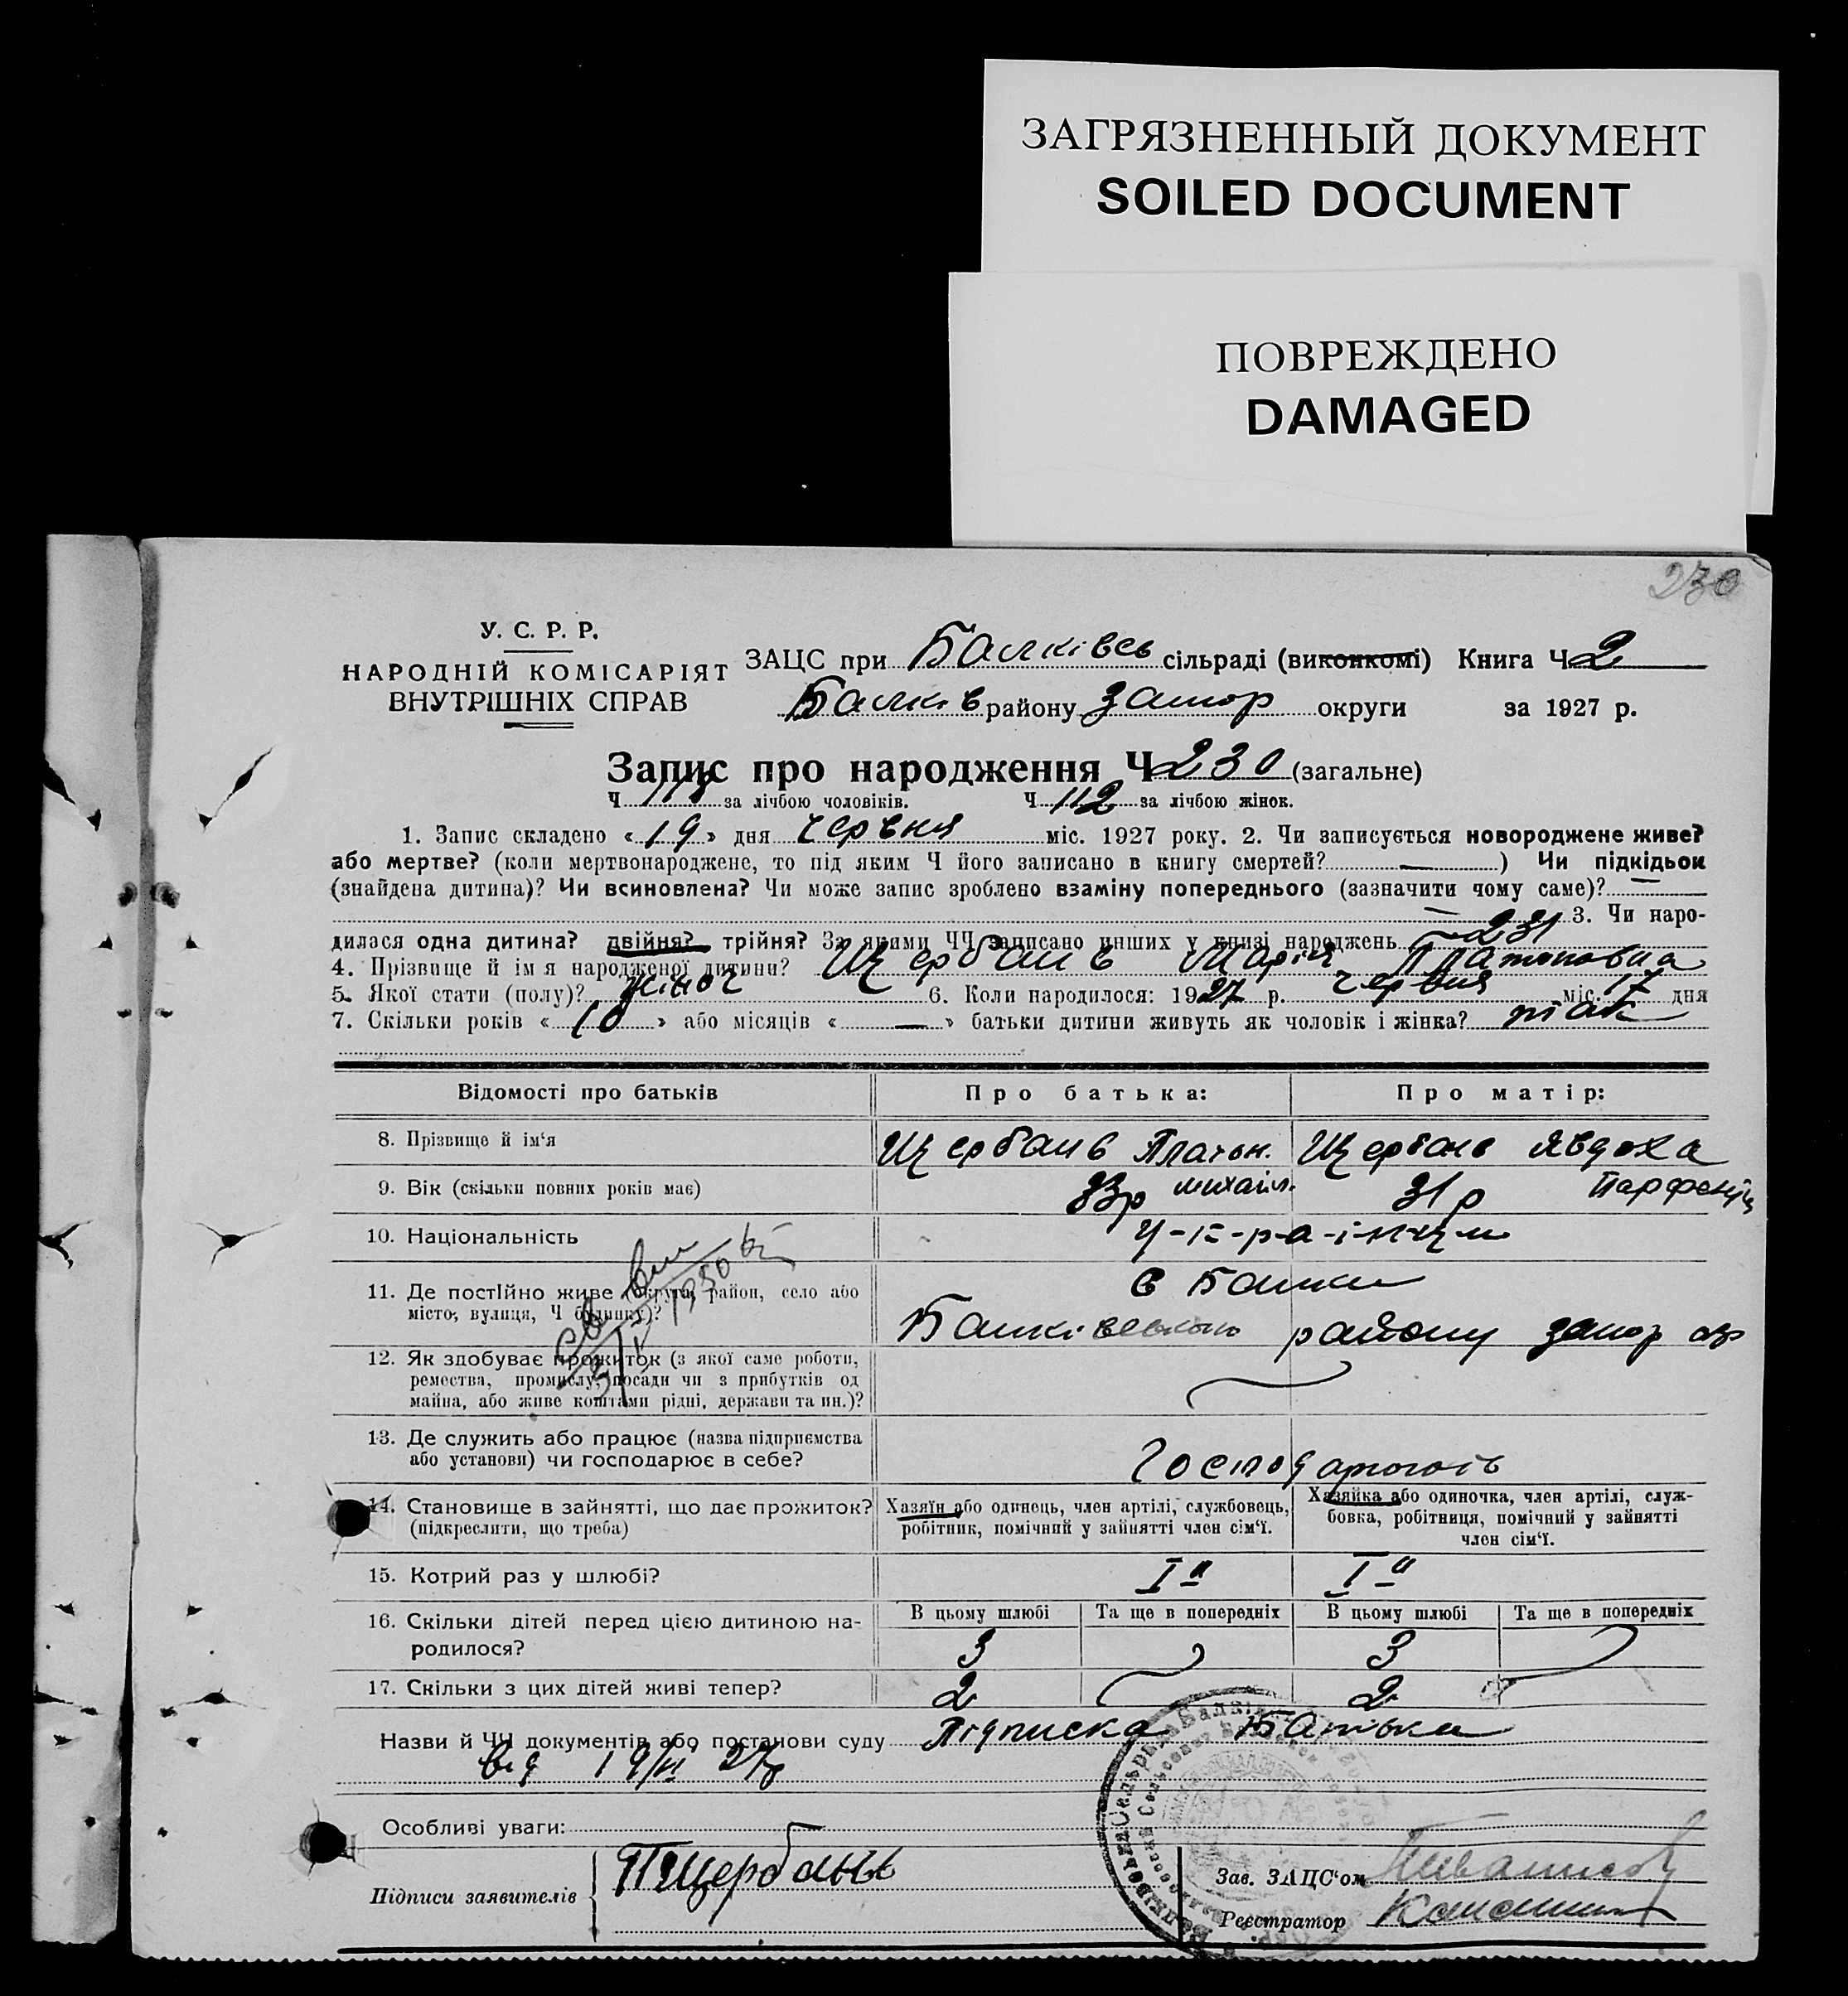 ЗАГРЯЗНЕННЫЙ ДОКУМЕНТ
SOILED DOCUMENT
ПОВРЕЖДЕНО
DAMAGED
230
У. С. Р. Р.
НАРОДНІЙ КОМІСАРІЯТ
ВНУТРІШНІХ СПРАВ
ЗАЦС при Балківсь сільраді (виконкомі) Книга Ч 2
Балків району Запор округи за 1927 р.
Запис про народження Ч 230 (загальне)
Ч 118 за лічбою чоловіків. Ч 112 за лічбою жінок.
1. Запис складено «19» дня червня міс. 1927 року. 2. Чи записується новороджене живе?
або мертве? (коли мертвонароджене, то під яким Ч його записано в книгу смертей? —) Чи підкідьок
(знайдена дитина)? Чи всиновлена? Чи може запис зроблено взаміну попереднього (зазначити чому саме)? —
— 3. Чи наро-
дилася одна дитина? двійня? трійня? За якими ЧЧ записано инших у книзі народжень 231
4. Прізвище й ім я народженої дитини? Щербань Марія Платоновна
5. Якої стати (полу)? жіноч 6. Коли народилося: 1927 р. червня міс. 17 дня
7. Скільки років «10» або місяців «—» батьки дитини живуть як чоловік і жінка? так
Відомості про батьків Про батька: Про матір:
8. Прізвище й ім‘я Щербань Платон. Щербань Явдоха
9. Вік (скільки повних років має) 33р михайл. 31р Парфеній
10. Національність У-к-р-а-ї-нци
11. Де постійно живе (округа, район, село або в Балки
місто, вулиця, Ч будинку)? Балківського району запор окр
12. Як здобуває прожиток (з якої саме роботи,
ремества, промислу, посади чи з прибутків од
майна, або живе коштами рідні, держави та ин.)?
13. Де служить або працює (назва підприємства
або установи) чи господарює в себе? Господарюють
14. Становище в зайнятті, що дає прожиток? Хазяїн або одинець, член артілі, службовець, Хазяйка або одиночка, член артілі, служ-
(підкреслити, що треба) робітник, помічний у зайнятті член сім‘ї. бовка, робітниця, помічний у зайнятті
член сім‘ї.
15. Котрий раз у шлюбі? І-й І-й
16. Скільки дітей перед цією дитиною на- В цьому шлюбі Та ще в попередніх В цьому шлюбі Та ще в попередніх
родилося? 3 3
17. Скільки з цих дітей живі тепер? 2 2
Назви й ЧЧ документів або постанови суду Підписка Батька
від 19/VI 27р
Особливі уваги:
Підписи заявителів ПЩербань
Зав. ЗАЦС‘ом
Реєстратор